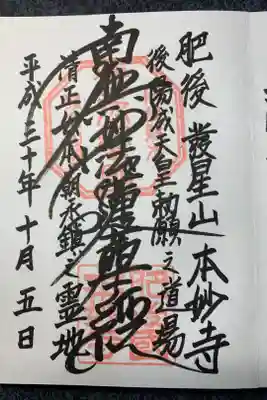 肥後 發星山 本妙寺
後陽成天皇勅願之道場
南無妙法蓮華経
清正公本廟永鎮之霊地
平成三十年十月五日